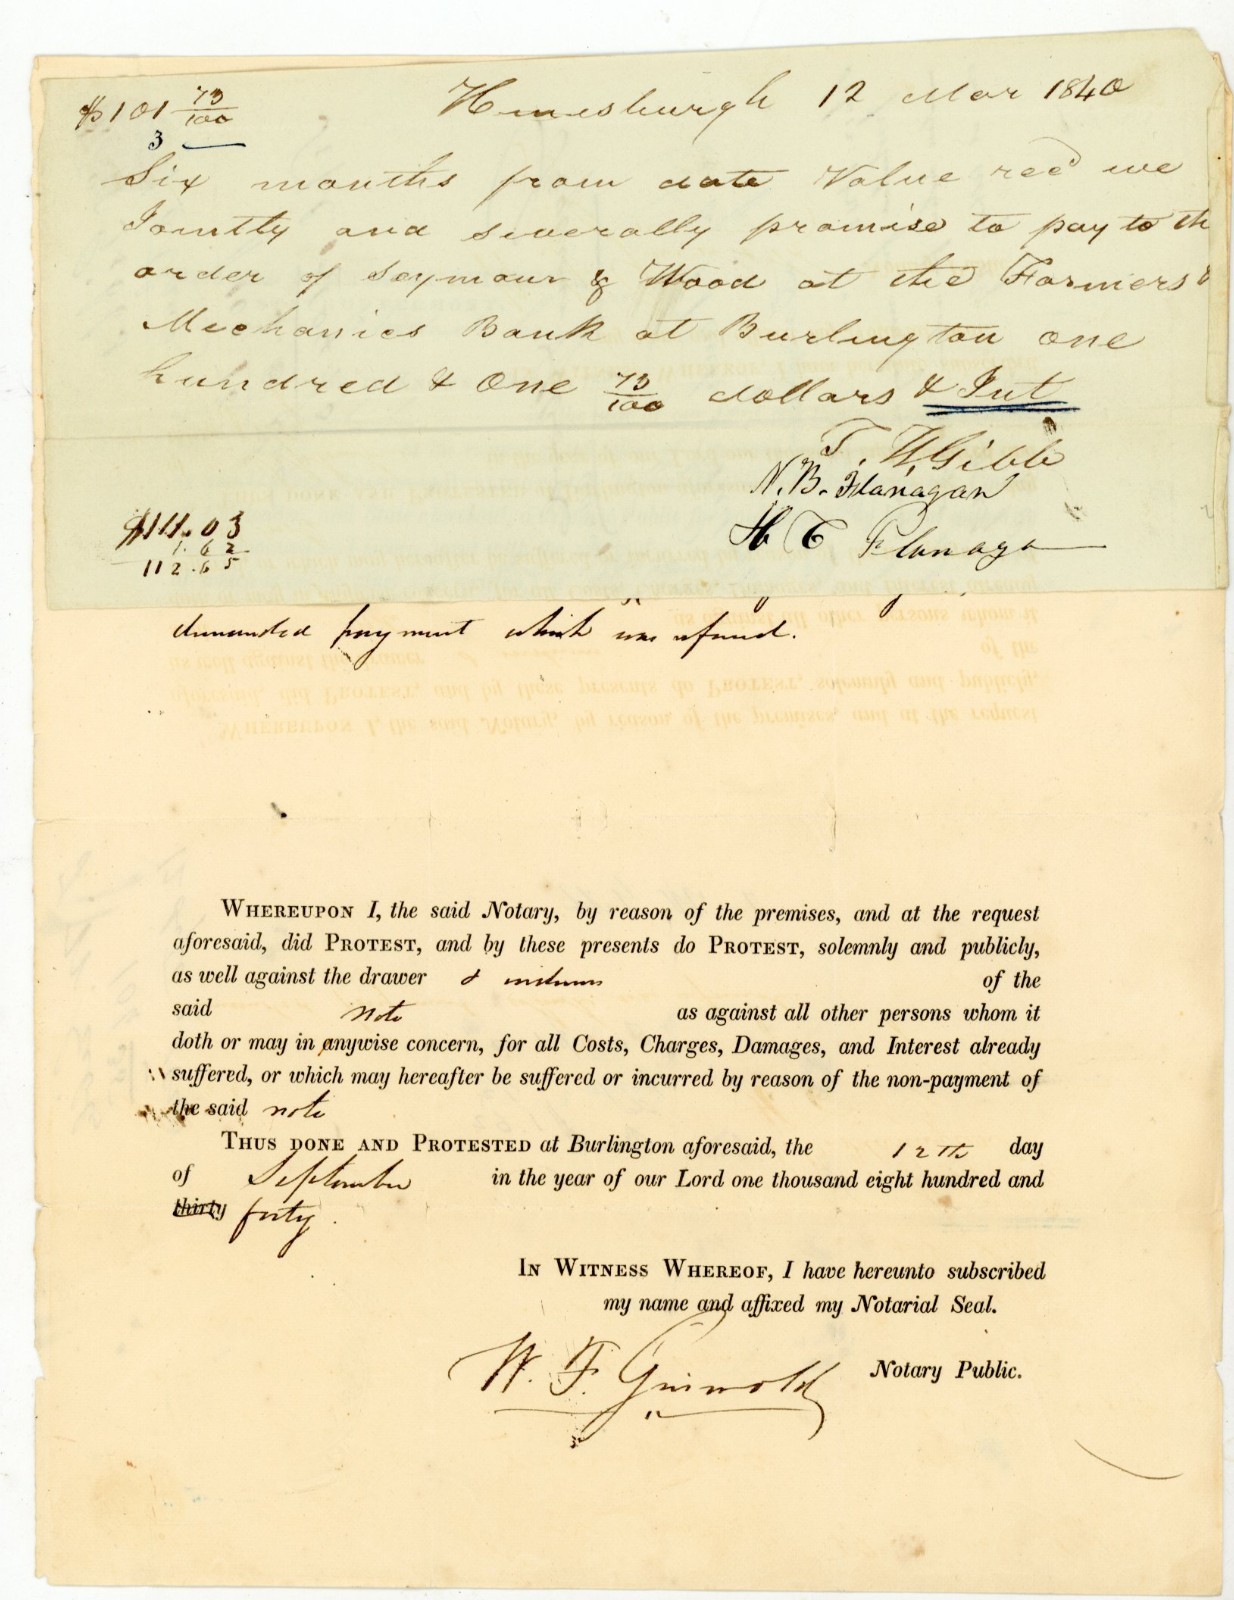 $101 73/100 Hinesburgh 12 Mar 1840
3
Six months from date Value recd we
Jointly and severally promise to pay to th
order of Seymour & Wood at the Farmers &
Mechanics Bank at Burlington one
hundred & One 73/100 dollars & Int
T. W. Gibb
N. B. Flanagan
H C Flanagan
$111.03
1.62
112.65
demanded payment which was refused.
WHEREUPON I, the said Notary, by reason of the premises, and at the request
aforesaid, did PROTEST, and by these presents do PROTEST, solemnly and publicly,
as well against the drawer & indorsers of the
said note as against all other persons whom it
doth or may in anywise concern, for all Costs, Charges, Damages, and Interest already
suffered, or which may hereafter be suffered or incurred by reason of the non-payment of
the said note
THUS DONE AND PROTESTED at Burlington aforesaid, the 12th day
of September in the year of our Lord one thousand eight hundred and
thirty forty.
IN WITNESS WHEREOF, I have hereunto subscribed
my name and affixed my Notarial Seal.
W. F. Griswold Notary Public.